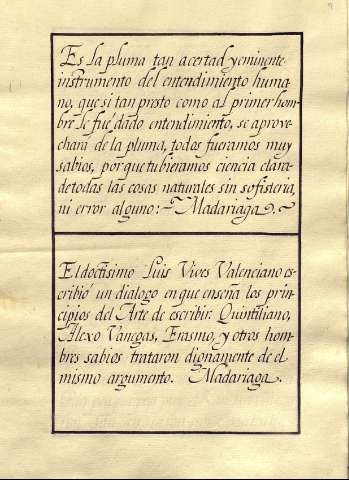 Es la pluma tan acertad y eminente
instrumento del entendimiento huma
no, que si tan presto como al primer hom
bre le fue dado entendimiento, se aprove
chara de la pluma, todos fueramos muy
sabios, porque tubieramos ciencia clara
de todas las cosas naturales sin sofisteria,
ni error alguno:~ Madariaga.~
El doctisimo Luis Vives Valenciano es
cribió un dialogo en que enseña los prin
cipios del Arte de escribir. Quintiliano,
Alexo Vanegas, Erasmo, y otros hom
bres sabios trataron dignamente de el
mismo argumento. Madariaga.